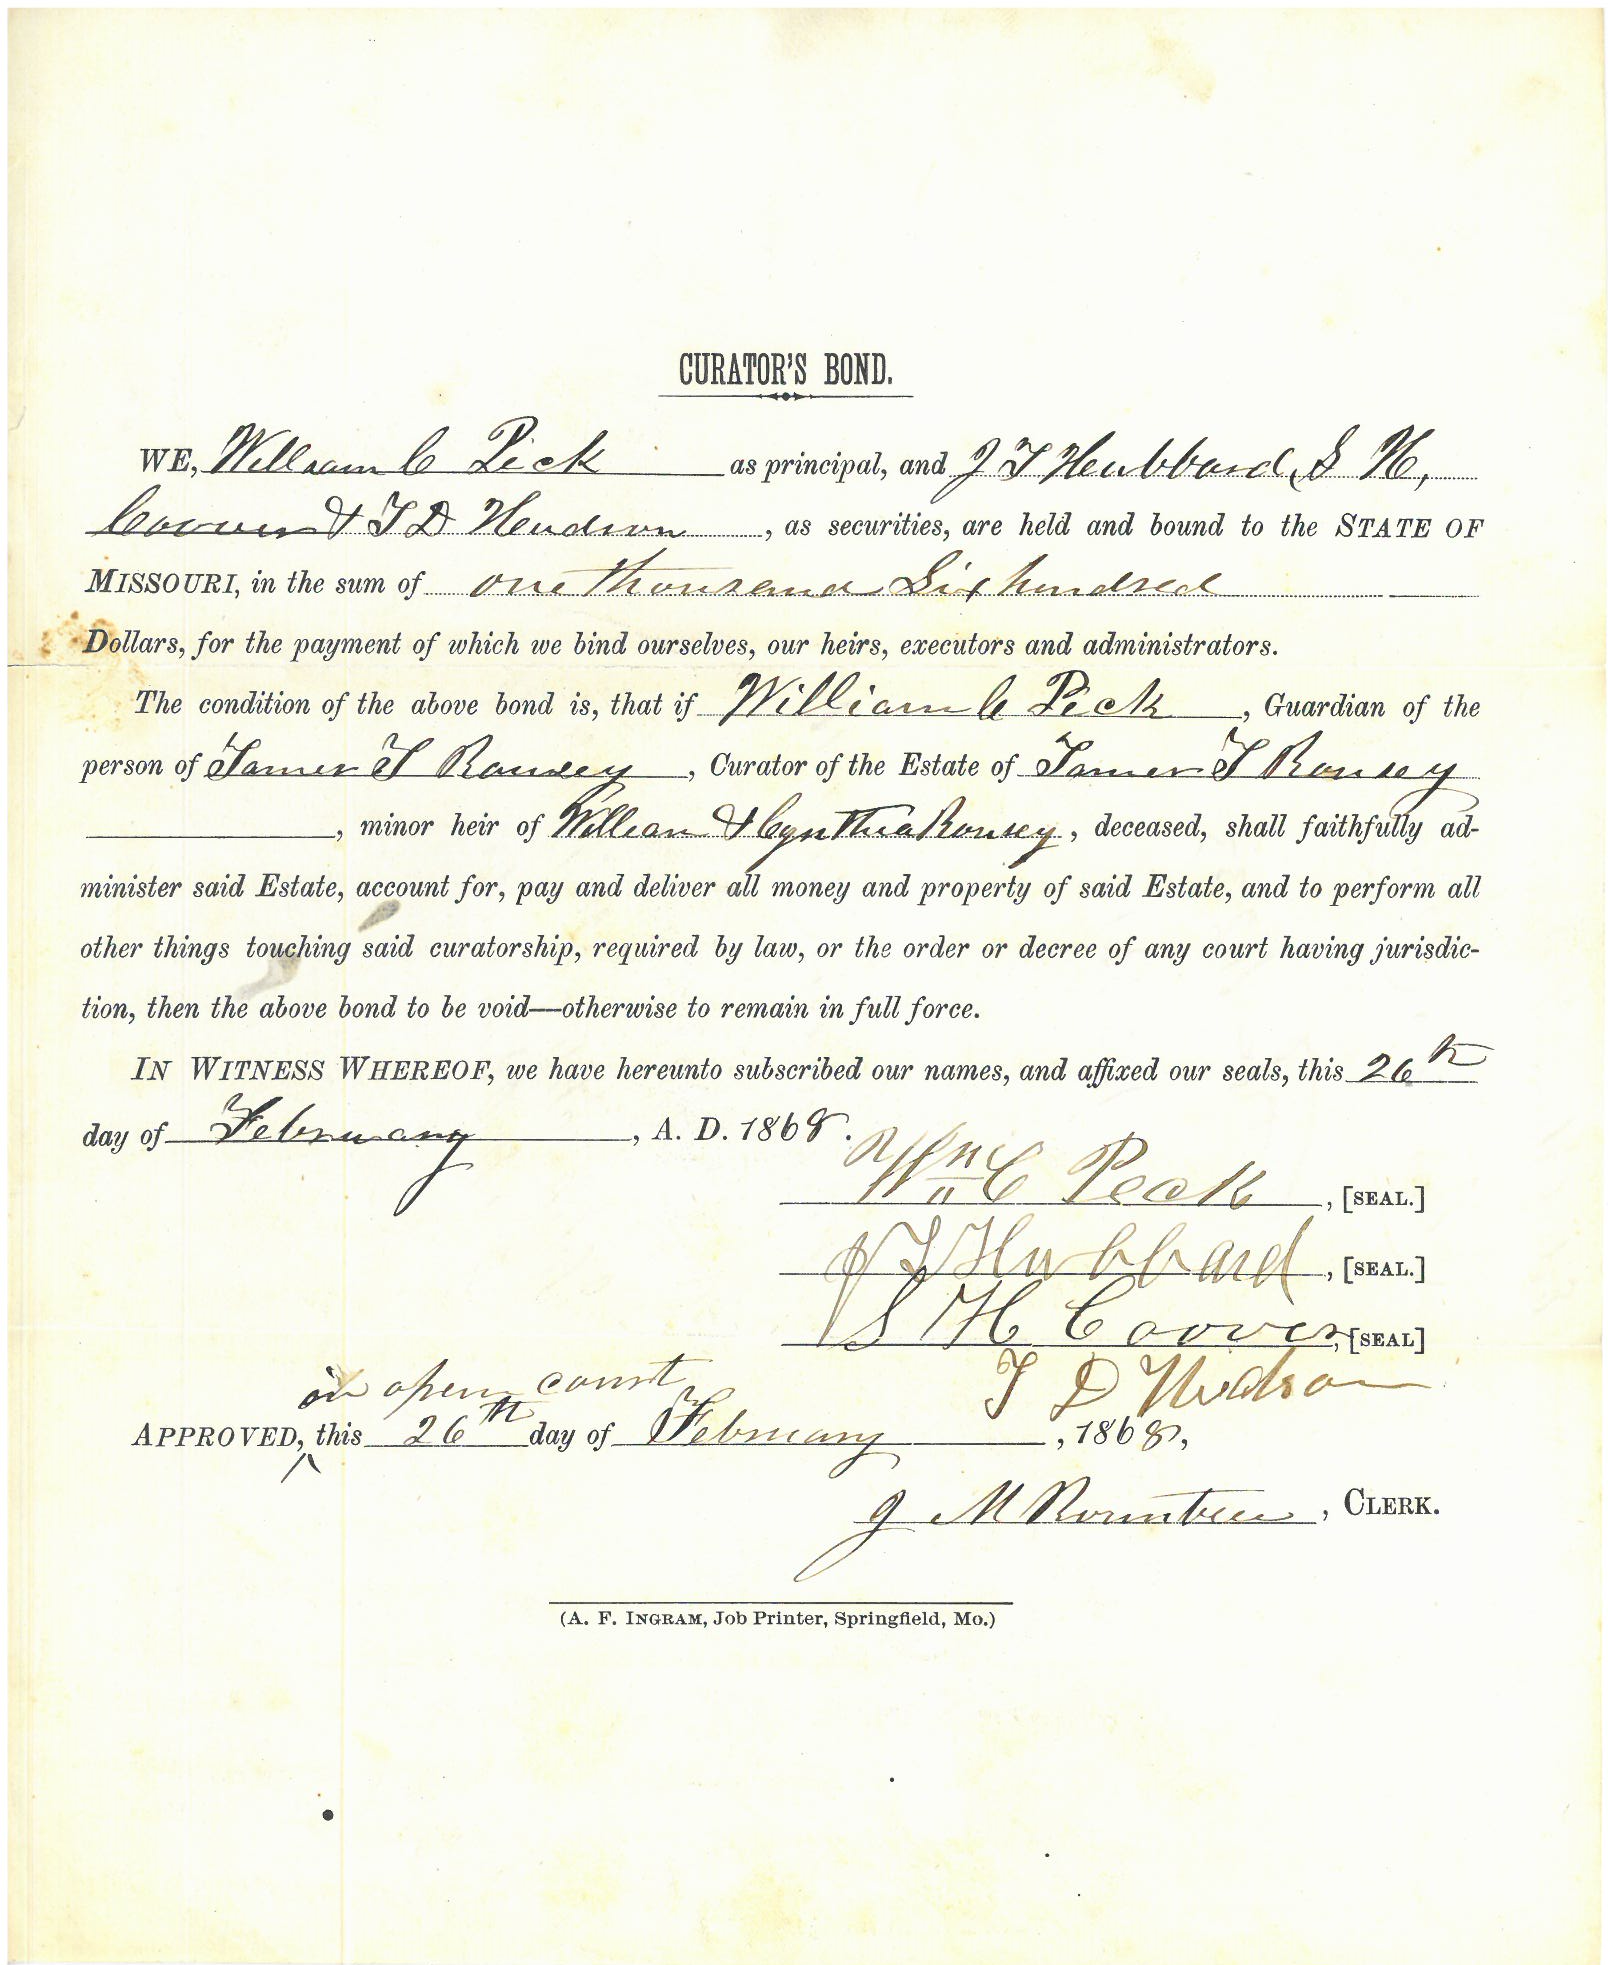 CURATOR'S BOND.
WE, William C Peck as principal, and J T Hubbard, S H,
Coover & T D Hudson, as securities, are held and bound to the STATE OF
MISSOURI, in the sum of one thousand Six hundred
Dollars, for the payment of which we bind ourselves, our heirs, executors and administrators.
The condition of the above bond is, that if William C Peck, Guardian of the
person of James T Rousey, Curator of the Estate of James T Rousey
, minor heir of William & Cynthia Rousey, deceased, shall faithfully ad-
minister said Estate, account for, pay and deliver all money and property of said Estate, and to perform all
other things touching said curatorship, required by law, or the order or decree of any court having jurisdic-
tion, then the above bond to be void—otherwise to remain in full force.
IN WITNESS WHEREOF, we have hereunto subscribed our names, and affixed our seals, this 26th
day of February, A. D. 1868.
Wm C Peck, [SEAL.]
J T Hubbard, [SEAL.]
S H Coover, [SEAL]
T D Hudson
in open court
APPROVED, this 26th day of February, 1868,
J M Rountree, CLERK.
(A. F. INGRAM, Job Printer, Springfield, Mo.)